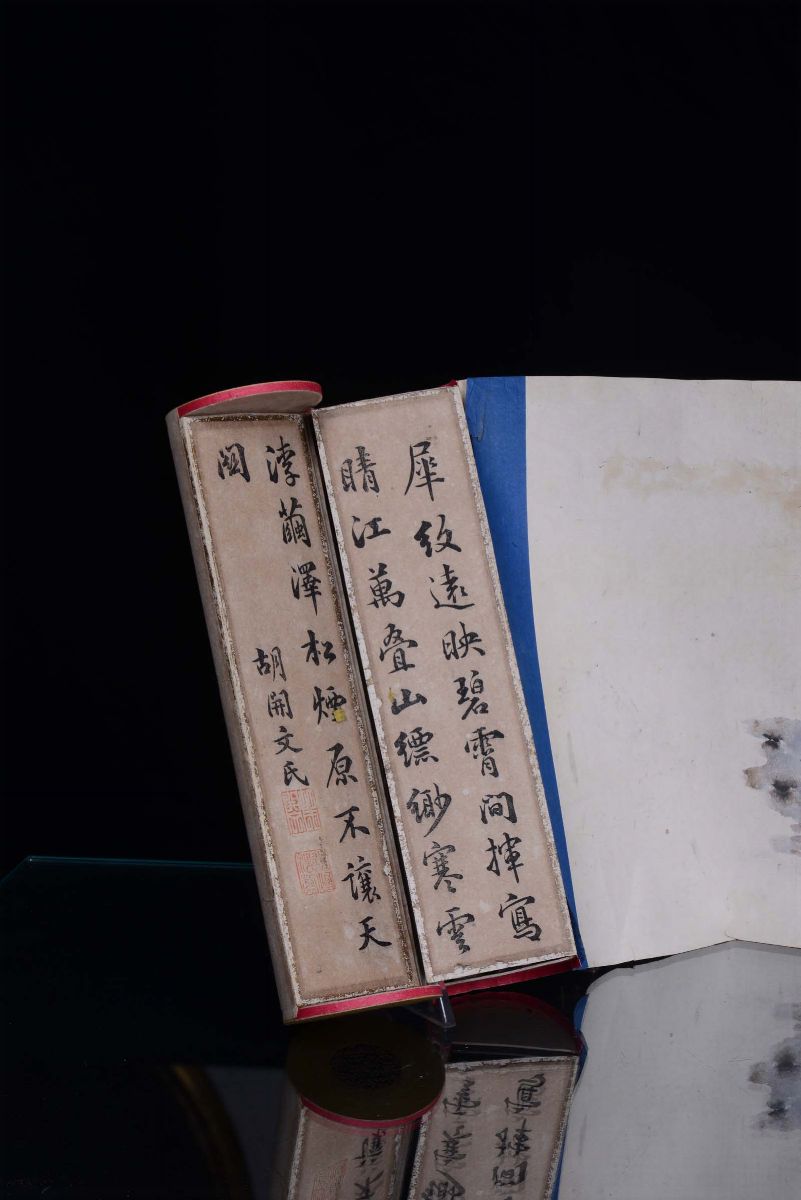 犀紋遠映碧霄間揮寫
晴江萬叠山縹緲寒雲
浮蘭澤松煙原不讓天
閑
胡開文氏